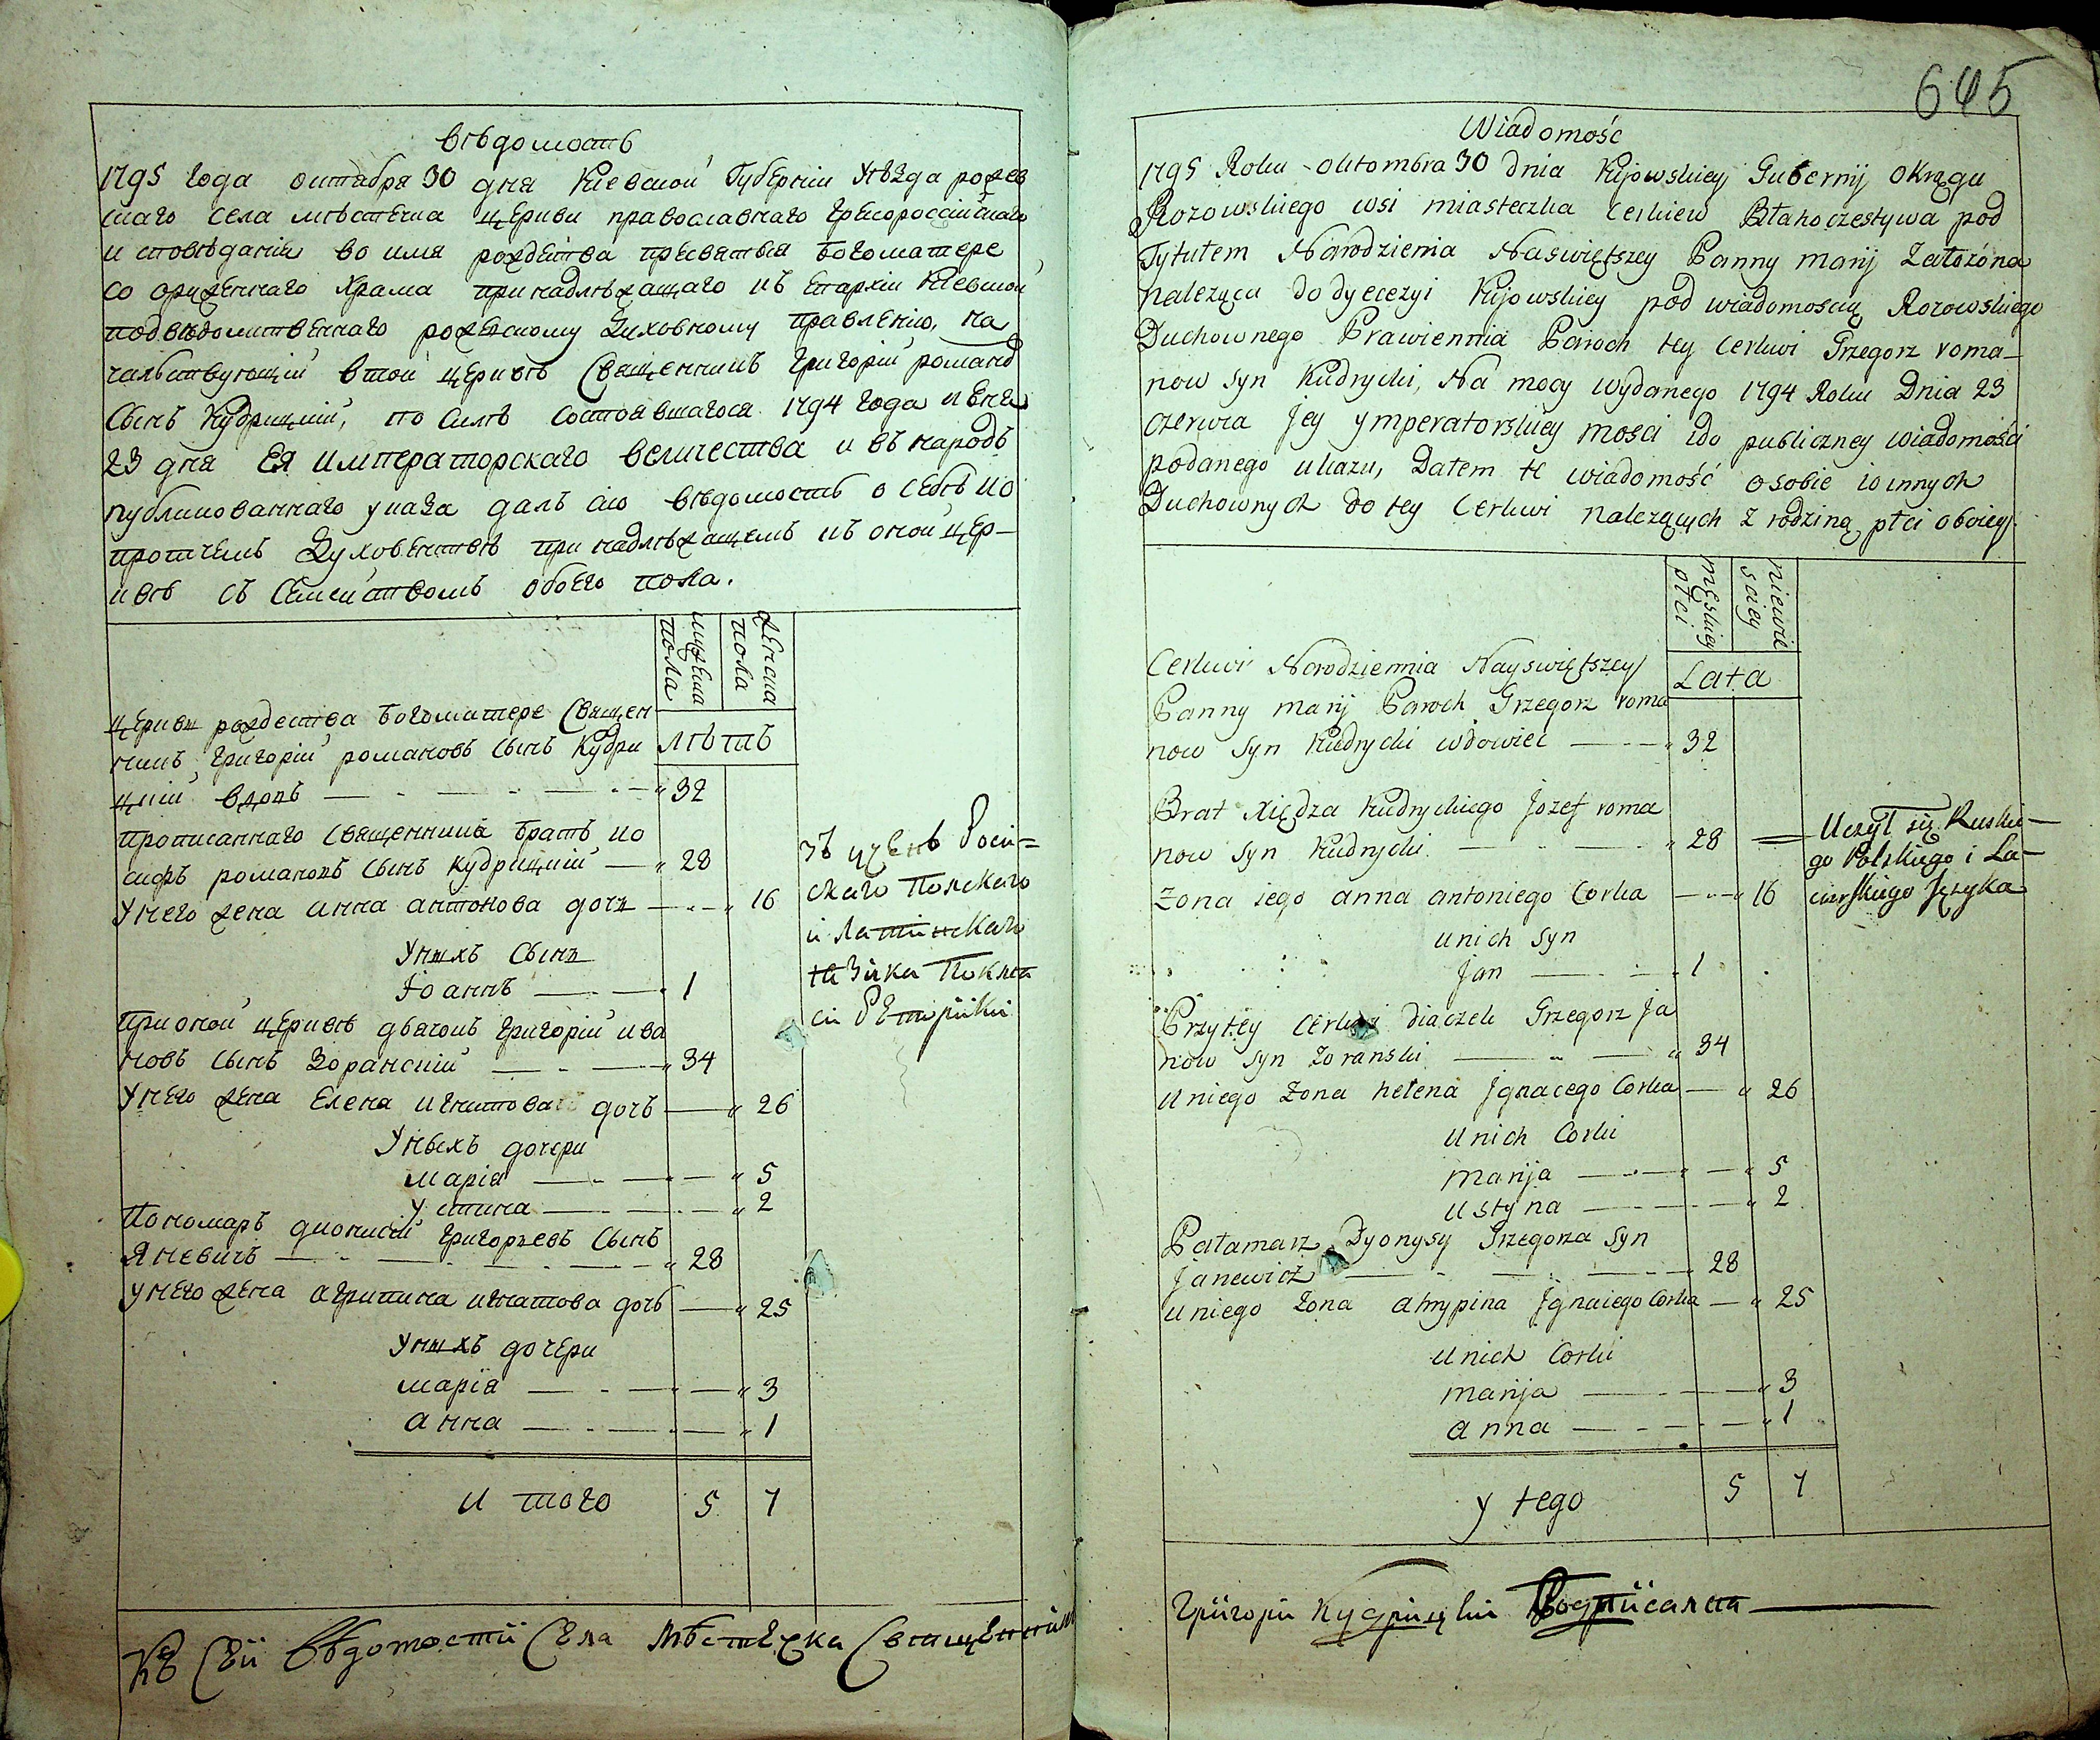 вѣдомость
1795 года октабря 30 дня Киевской Губернии Уѣзда рожев
скаго села мѣстечка церкви православнаго Грекороссийскаго
исповѣдания во имя рождества пресвятыя Богоматере
сооруженнаго Храма принадлѣжащаго къ Епархии Киевской
подвѣдомственнаго рожевскому Духовному правлению, на
чальствующий втой церквѣ Священникъ Григорий романовъ
Сынъ Кудрицкий, по силѣ состоявшагося 1794 года июня
23 дня Ея императорскаго величества и въ народъ
публикованнаго указа далъ сию вѣдомость о себѣ и о
протчемъ Духовенствѣ принадлѣжащемъ къ оной цер-
квѣ съ Семействомъ обоего пола.
мужеска пола
женска пола
лѣтъ
церкви рождества Богоматере Священ
никъ Григорий романовъ сынъ Кудри
цкий вдовъ 32
прописаннаго священника братъ ио
сифъ романовъ сынъ кудрицкий 28
Унего жена анна антонова дочь 16
Унихъ Сынъ
Иоаннъ 1
При оной церквѣ дьячокъ григорий ива
новъ сынъ Зоранский 34
Унего жена Елена игнатова дочь 26
Уныхъ дочери
мария 5
устина 2
Пономаръ дионисий григорьевъ Сынъ
Яневичъ 28
Унего жена агрипина игнатова дочь 25
Унихъ дочери
мария 3
анна 1
и того 5 7
Роси=
скаго Полскаго
и Латинскаго
Къ Сей Вѣдомости Села Мѣстечка Священникъ
645
Wiadomość
1795 Roku oktombra 30 dnia Kijowskiey Gubernij okręgu
Rozowskiego wsi miasteczka Cerkiew Błahoczestywa pod
Tytułem Narodzienia Naswiętszey Panny Marij Załozóna
nalezącu do dyecezyi Kijowskiey pod wiadomoscią Rozowskiego
Duchownego Prawiennia Paroch tey Cerkwi Grzegorz roma-
now syn Kudrycki, Na mocy wydanego 1794 Roku Dnia 23
czerwca Jey ymperatorskiey mosci ido publiczney wiadomości
podanego ukazu, Datem te wiadomość osobie io innych
Duchownych do tey Cerkwi nalezących z rodziną płci oboiey.
męskiey płci
niewie sciey
Lata
Cerkwi Narodziennia Nayswiętszey
Panny marij Paroch Grzegorz roma
now syn Kudrycki wdowiec 32
Brat xiędza Kudryckiego Jozef roma
now syn Kudrycki 28
Uczył się Ruskie-
go Polskiego i Ła-
cinskiego Języka
zona iego anna antoniego Corka 16
unich syn
Jan 1
Przytey Cerkwi diaczek Grzegorz Ja
now syn Zoranski 34
Uniego zona helena Jgnacego Corka 26
Unich Corki
marija 5
ustyna 2
Pałamarz Dyonysy Grzegorza Syn
Janewicz 28
Uniego zona ahrypina Jgnaciego Corka 25
Unich Corki
marija 3
anna 1
y tego 5 7
Григорий Кудрицкий Подписался